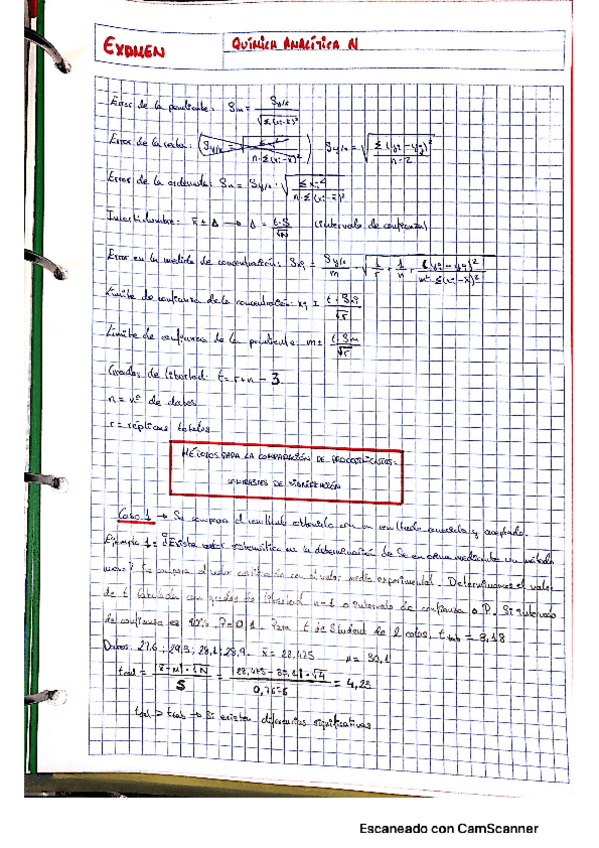 EXAMEN
QUÍMICA ANALÍTICA IV
Error de la pendiente: Sm = Sy/x / √Σ(xi-x̄)²
Error de la recta: Sy/x = √ Σ(yi-ŷi)² / n-2
Error de la ordenada: Sa = Sy/x · √ Σxi² / n·Σ(xi-x̄)²
Incertidumbre: x̄ ± Δ → Δ = t·S / √N (intervalo de confianza)
Error en la medida de concentración: Sxi = Sy/x / m
Límite de confianza de la concentración: xi ± t·Sxi / √r
Límite de confianza de la pendiente: m ± t·Sm / √r
Grados de libertad: t = r+n-3
n = nº de datos
r = réplicas totales
MÉTODOS PARA LA COMPARACIÓN DE PROCEDIMIENTOS:
CONTRASTES DE SIGNIFICACIÓN
Caso 1 → Se compara el resultado obtenido con un resultado conocido y aceptado.
Ejemplo 1: ¿Existe error sistemático en la determinación de Se en orina mediante un método
nuevo? Se compara el valor certificado con el valor medio experimental. Determinamos el valor
de t tabulada con grados de libertad n-1 o intervalo de confianza o P. Si intervalo
de confianza es 90% P=0,1. Para t de Student de 2 colas, t tab = 3,18
Datos: 27,6; 29,3; 28,1; 28,9. x̄ = 28,475 μ = 30,1
tcal = |x̄-μ|·√N / S = √4 / = 4,25
tcal > ttab → Sí existen diferencias significativas
Escaneado con CamScanner